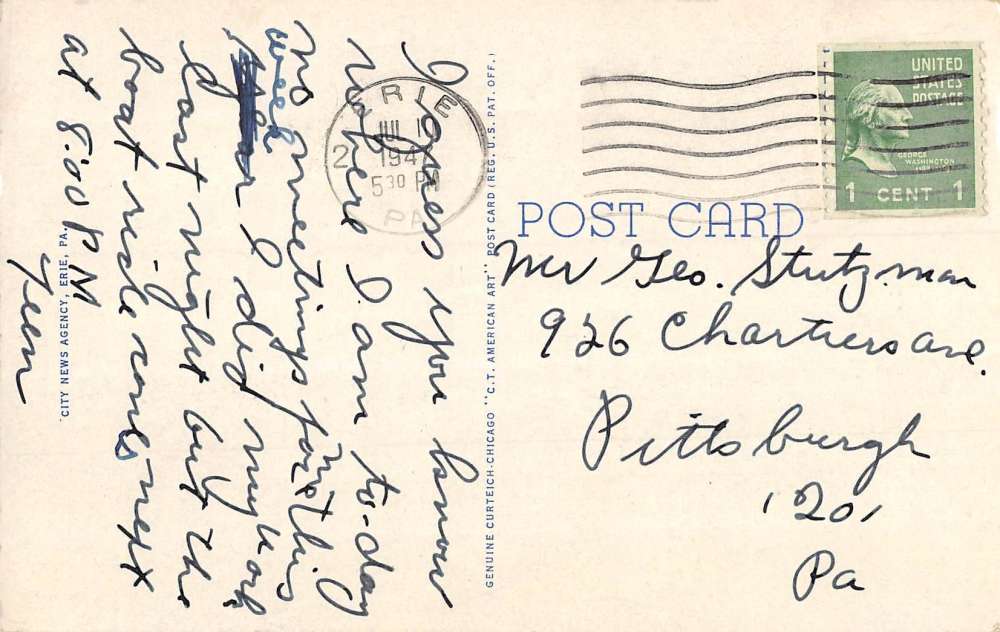 I guess you know
where I am to-day
No meetings for this
week I did my work
last night but the
boat ride comes next
at 8:00 PM
CITY NEWS AGENCY, ERIE, PA.
GENUINE CURTEICH-CHICAGO "C.T. AMERICAN ART" POST CARD (REG. U.S. PAT. OFF.)
ERIE
JUL
2 194
5 30 PM
PA
UNITED
STATES
POSTAGE
GEORGE
WASHINGTON
1 CENT 1
POST CARD
Mr Geo. Stutzman
926 Chartiers ave.
Pittsburgh
Pa